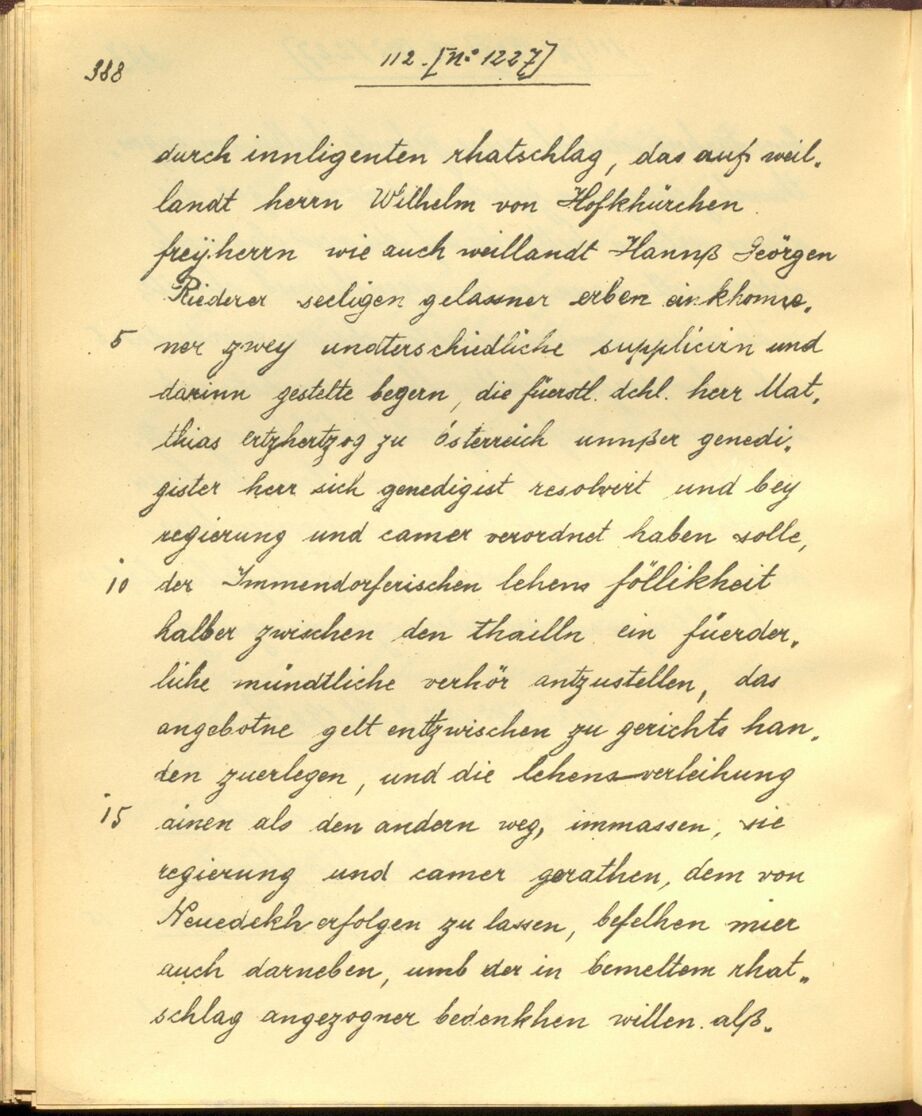 388
112. [No 1227]
durch innligenten rhatschlag, das auf weil„
landt herrn Wilhelm von Hofkhürchen
freÿherrn wie auch weillandt Hannß Geörgen
Riederer seeligen gelassner erben einkhome„
5 ner zwey undterschiedliche supplicirn und
darinn gestelte begern, die füerstl. dchl. herr Mat„
thias ertzhertzog zu österreich unnßer genedi„
gister herr sich genedigist resolvirt und bey
regierung und camer verordnet haben solle,
10 der Immendorferischen lehens föllikheit
halber zwischen den thailln ein füerder„
liche mündtliche verhör antzustellen, das
angebotne gelt entzwischen zu gerichts han„
den zuerlegen, und die lehens verleihung
15 ainen als den andern weg, immassen, sie
regierung und camer gerathen, dem von
Neuedekh erfolgen zu lassen, befelhen mier
auch darneben, umb der in bemeltem rhat„
schlag angezogner bedenkhen willen alß„